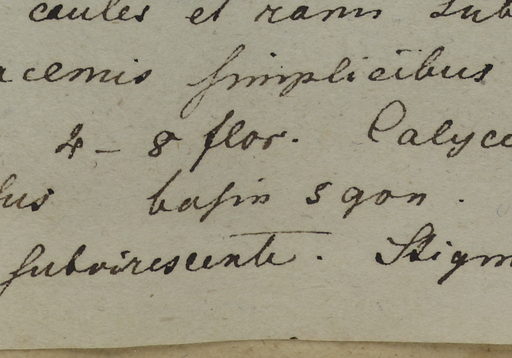 caules et ramis sub
acemis simplicibus
4 – 8 flor. Calyce
lus basin 5 gon.
subvirescente. Stigm